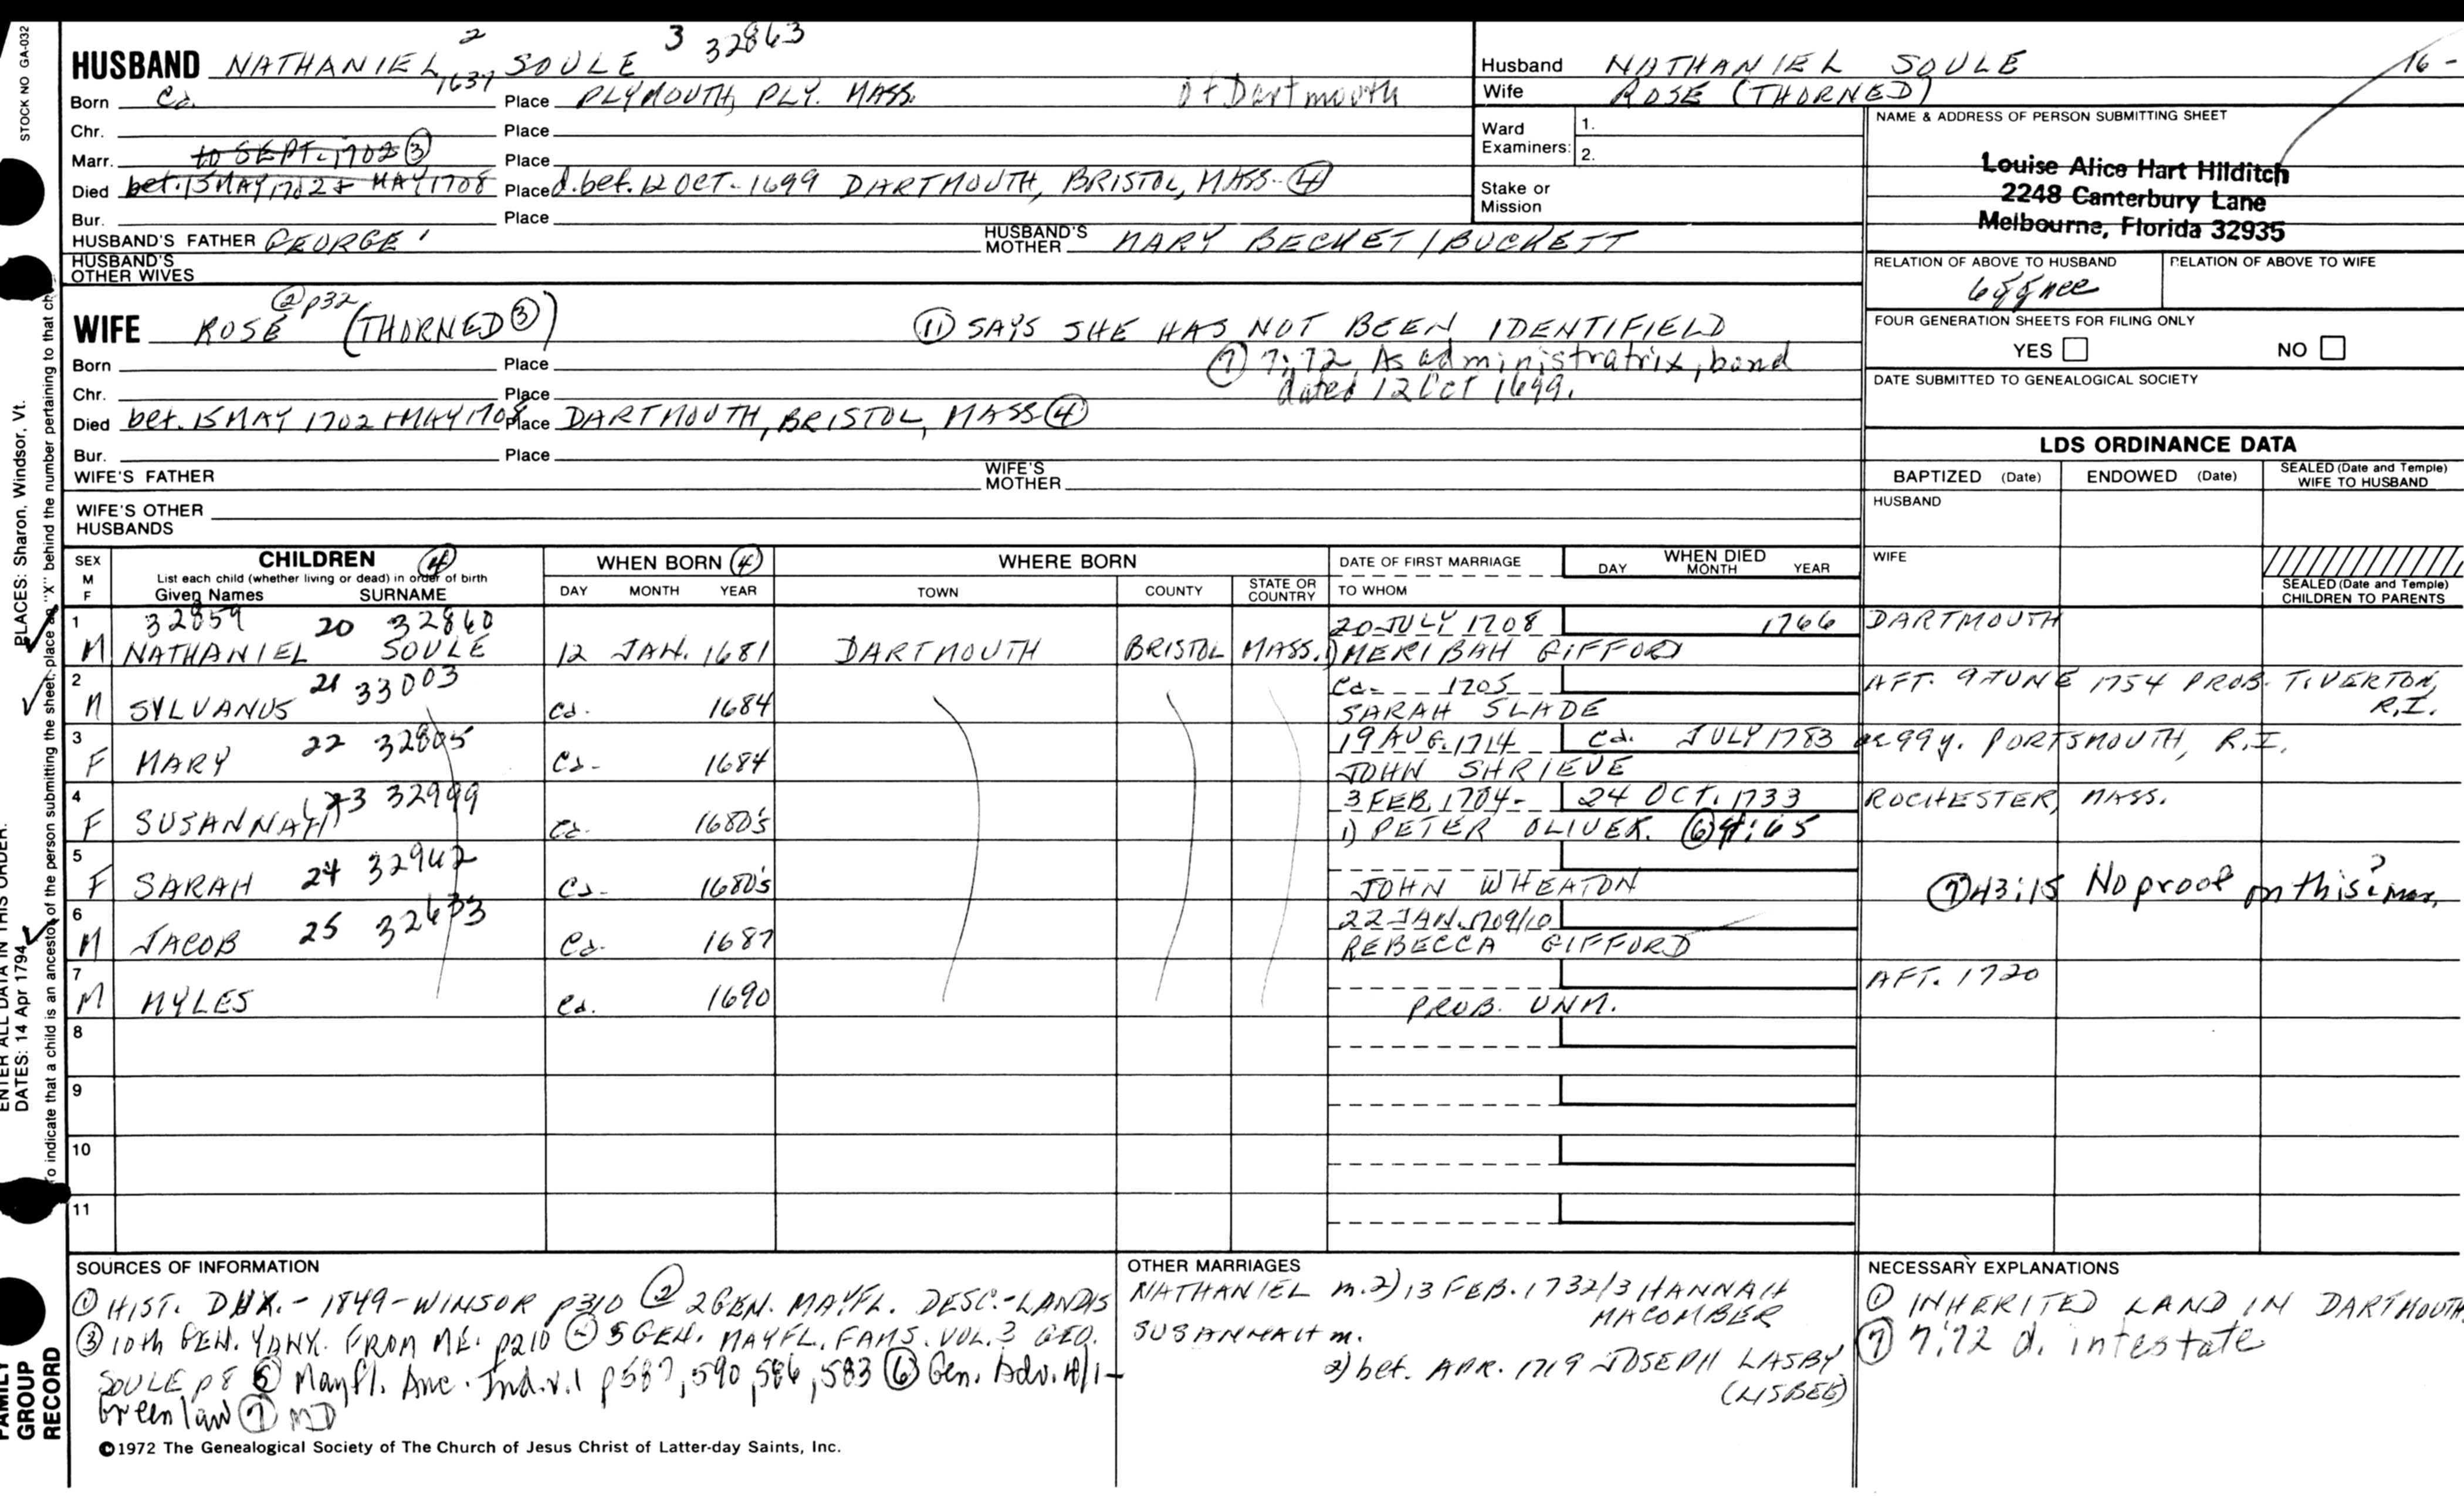 STOCK NO GA-032
PLACES: Sharon, Windsor, Vt.
ENTER ALL DATA IN THIS ORDER:
DATES: 14 Apr 1794
To indicate that a child is an ancestor of the person submitting the sheet, place an "X" behind the number pertaining to that
FAMILY GROUP RECORD
HUSBAND NATHANIEL 2 SOULE 3 32863
Born Ca. 1637 Place PLYMOUTH, PLY. MASS. of Dartmouth
Chr. Place
Marr. to SEPT. 1702 ③ Place
Died bet. 15 MAY 1702 + MAY 1708 Place d. bef. 12 OCT. 1699 DARTMOUTH, BRISTOL, MASS. ④
Bur. Place
HUSBAND'S FATHER GEORGE 1 HUSBAND'S MOTHER MARY BECKET/BUCKETT
HUSBAND'S OTHER WIVES
② p32
WIFE ROSE (THORNED ③) ⑪ SAYS SHE HAS NOT BEEN IDENTIFIELD
Born Place ⑦ 7:72 As administratrix, bond
Chr. Place dated 12 Oct 1699.
Died bet. 15 MAY 1702 + MAY 1708 Place DARTMOUTH, BRISTOL, MASS ④
Bur. Place
WIFE'S FATHER WIFE'S MOTHER
WIFE'S OTHER HUSBANDS
Husband NATHANIEL SOULE 16-
Wife ROSE (THORNED)
Ward Examiners: 1.
2.
Stake or Mission
NAME & ADDRESS OF PERSON SUBMITTING SHEET
Louise Alice Hart Hilditch
2248 Canterbury Lane
Melbourne, Florida 32935
RELATION OF ABOVE TO HUSBAND RELATION OF ABOVE TO WIFE
FOUR GENERATION SHEETS FOR FILING ONLY
YES NO
DATE SUBMITTED TO GENEALOGICAL SOCIETY
LDS ORDINANCE DATA
BAPTIZED (Date) ENDOWED (Date) SEALED (Date and Temple) WIFE TO HUSBAND
HUSBAND
WIFE
SEALED (Date and Temple) CHILDREN TO PARENTS
SEX M F CHILDREN ④ WHEN BORN ④ WHERE BORN DATE OF FIRST MARRIAGE WHEN DIED
List each child (whether living or dead) in order of birth
Given Names SURNAME DAY MONTH YEAR TOWN COUNTY STATE OR COUNTRY TO WHOM DAY MONTH YEAR
1 32859 20 32860 20 JULY 1708 1766 DARTMOUTH
M NATHANIEL SOULE 12 JAN. 1681 DARTMOUTH BRISTOL MASS. 1) MERIBAH GIFFORD
2 21 33003 Ca. 1705 AFT. 9 JUNE 1754 PROB. TIVERTON, R.I.
M SYLVANUS Ca. 1684 SARAH SLADE
3 22 32805 19 AUG. 1714 Ca. JULY 1783 ae 99y. PORTSMOUTH, R.I.
F MARY Ca. 1684 JOHN SHRIEVE
4 23 32999 3 FEB. 1704- 24 OCT. 1733 ROCHESTER, MASS.
F SUSANNAH Ca. 1680's 1) PETER OLIVER. ⑥ 4:65
5 24 32942
F SARAH Ca. 1680's JOHN WHEATON ⑦ 43:15 No proof on this mar. ?
6 25 32633 22 JAN. 1709/10
M JACOB Ca. 1687 REBECCA GIFFORD
7 AFT. 1720
M MYLES Ca. 1690 PROB. UNM.
8
9
10
11
SOURCES OF INFORMATION
① HIST. DUX. - 1849 - WINSOR p310 ② 2 GEN. MAYFL. DESC. - LANDIS
③ 10th GEN. YANK. FROM ME. p210 ④ 5 GEN. MAYFL. FAMS. VOL. 3 GEO.
SOULE p8 ⑤ Mayfl. Anc. Ind. v. 1 p587, 590, 586, 583 ⑥ Gen. Adv.
Greenlaw ⑦ MD
OTHER MARRIAGES
NATHANIEL m. 2) 13 FEB. 1732/3 HANNAH
MACOMBER
SUSANNAH m.
2) bef. APR. 1719 JOSEPH LASBY
(LISBEE)
NECESSARY EXPLANATIONS
① INHERITED LAND IN DARTMOUTH
⑦ 7:72 d. intestate
©1972 The Genealogical Society of The Church of Jesus Christ of Latter-day Saints, Inc.